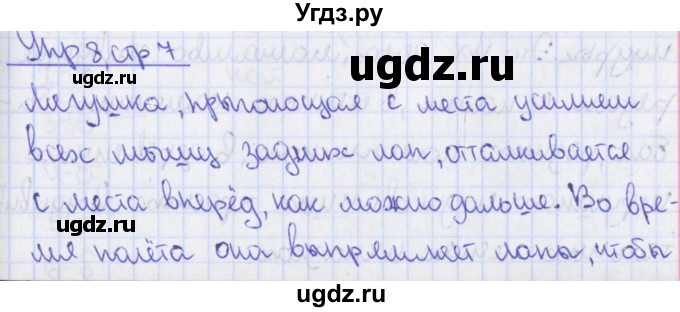 Угдз.ру
Упр 8, стр 7
ugdz.ru
ugdz.ru
Лягушка, прыгающая с места усилием
всех мышц задних лап, отталкивается
ugdz.ru
с места вперёд, как можно дальше. Во вре-
ugdz.ru
мя полёта она выпрямляет лапы, чтобы
ugdz.ru
ugdz.ru